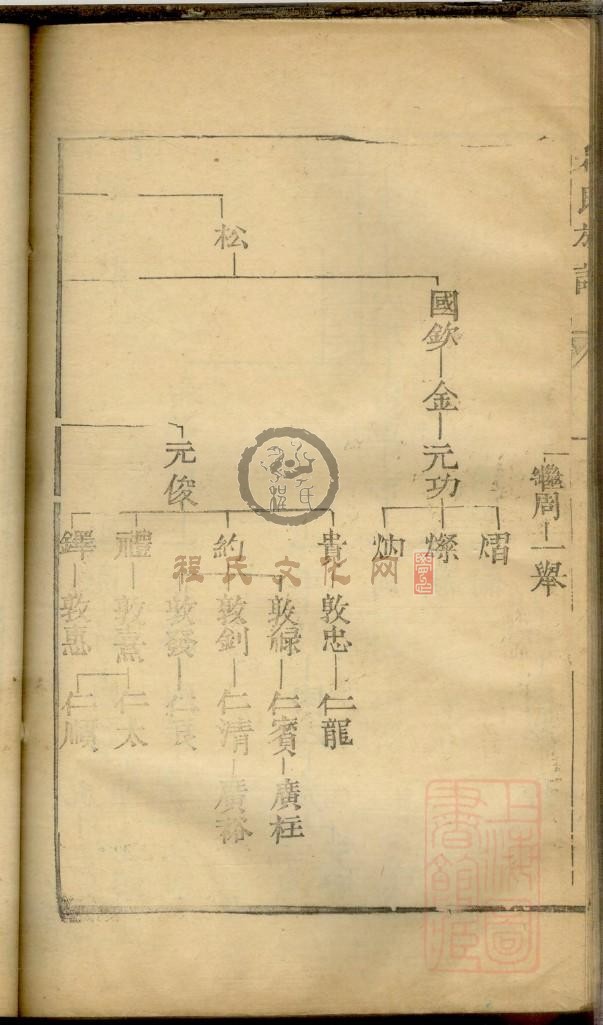 繼周 一舉
松
國欽 金 元功
熠
燦
元俊
貴 敦忠 仁龍
約
敦祿 仁賓 廣柱
敦釗 仁清 廣裕
敦發 仁良
禮 敦熹 仁太
鐸 敦惠 仁順
程氏文化网
上海圖書館藏